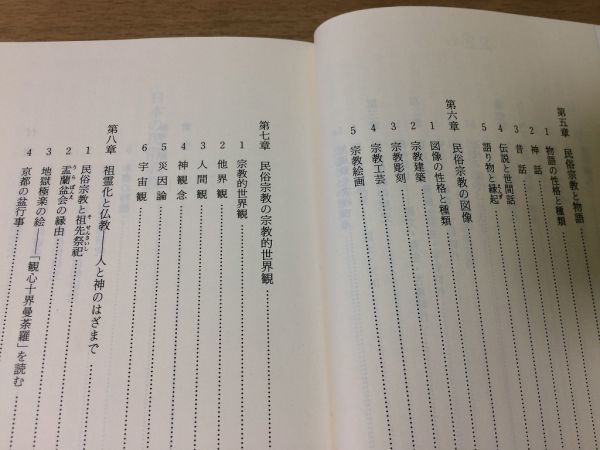 第五章 民俗宗教と物語
1 物語の性格と種類
2 神話
3 昔話
4 伝説と世間話
5 語り物と縁起
第六章 民俗宗教の図像
1 図像の性格と種類
2 宗教建築
3 宗教彫刻
4 宗教工芸
5 宗教絵画
第七章 民俗宗教の宗教的世界観
1 宗教的世界観
2 他界観
3 人間観
4 神観念
5 災因論
6 宇宙観
第八章 祖霊化と仏教――人と神のはざまで
1 民俗宗教と祖先祭祀
2 盂蘭盆会の縁由
3 地獄極楽の絵――「観心十界曼荼羅」を読む
4 京都の盆行事